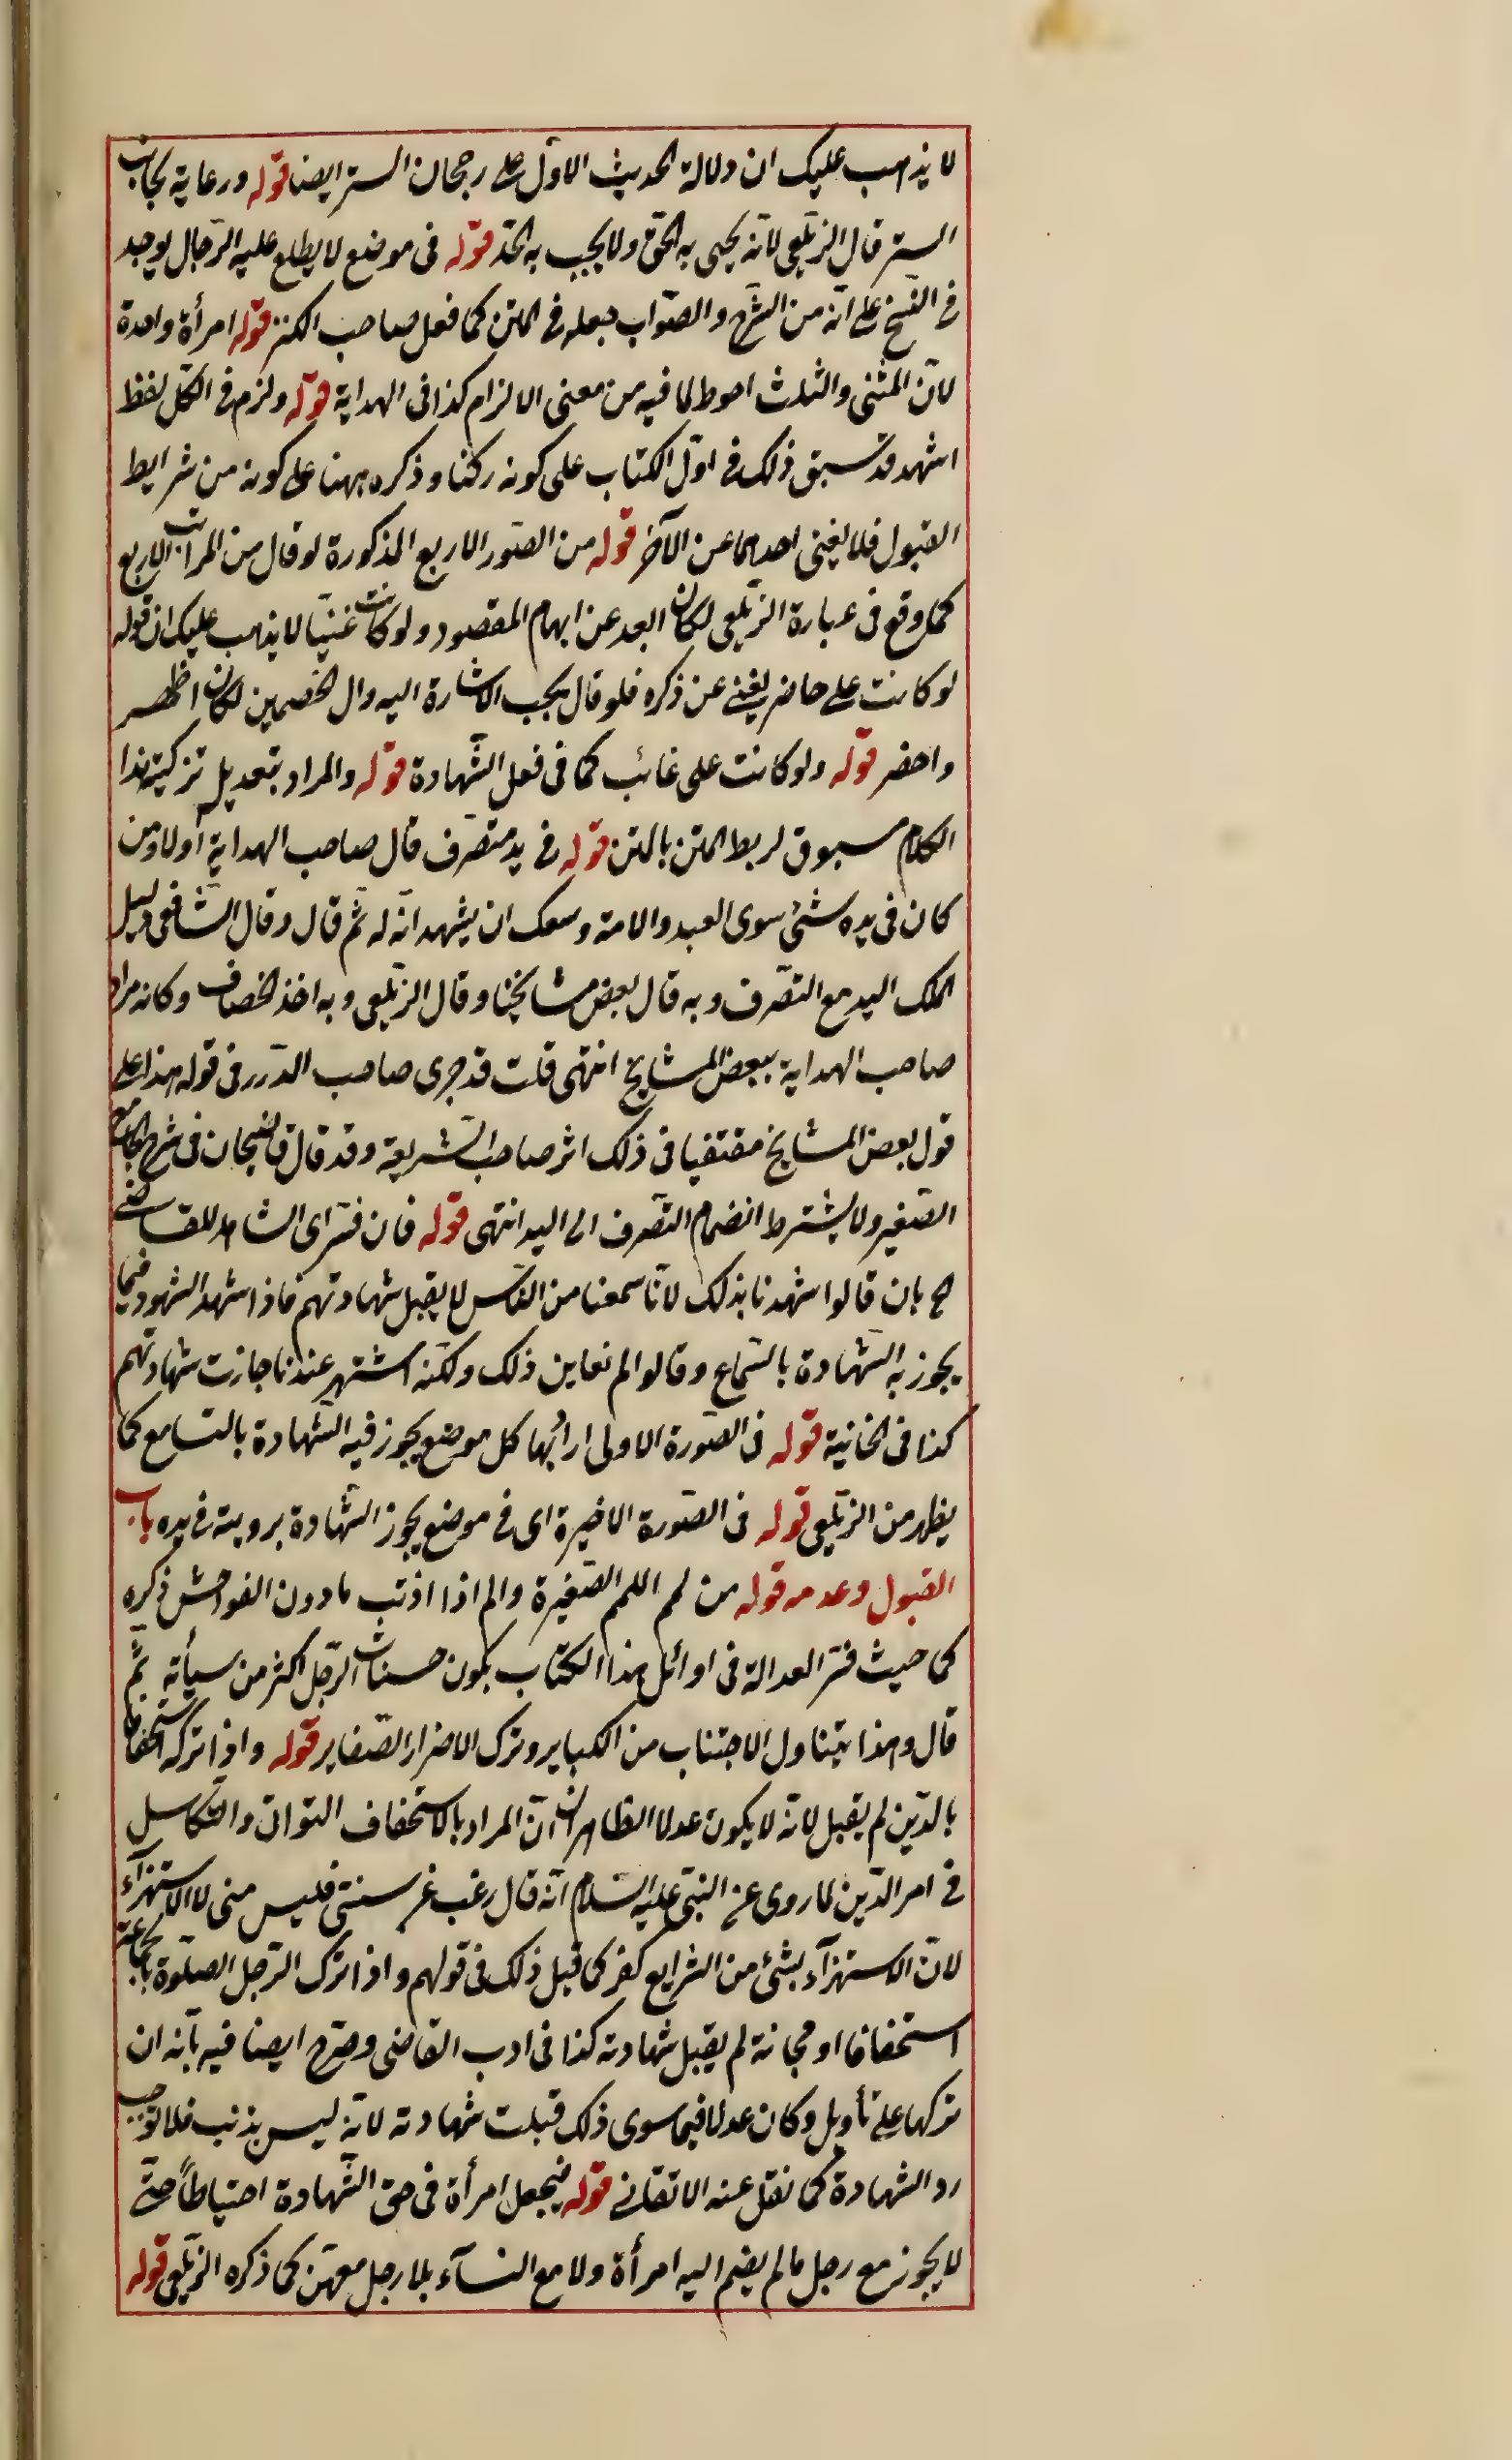 لا يذهب عليك ان دلالة الحديث الاول على رجحان الستر ايضا قوله ورعاية لجانب
الستر قال الزيلعى لانه يحيى به الحق ولا يجب به الحد قوله فى موضع لا يطلع عليه الرجال يوجد
فى النسخ على انه من الشرح والصواب جعله فى المتن كما فعل صاحب الكنز قوله امرأة واحدة
لان المثنى والثلث احوط لما فيه من معنى الالزام كذا فى الهداية قوله ولزم فى الكل لفظ
اشهد قد سبق ذلك فى اول الكتاب على كونه ركنا وذكره ههنا على كونه من شرايط
القبول فلا يغنى احدهما عن الآخر قوله من الصور الاربع المذكورة لو قال من المراتب الاربع
كما وقع فى عبارة الزيلعى لكان ابعد عن ابهام المقصود ولو كانت غنيا لا يذهب عليك ان قوله
لو كانت على حاضر يغنى عن ذكره فلو قال يجب الاشارة اليه وال الخصمين لكان اظهر
واخصر قوله ولو كانت على غائب كما فى فعل الشهادة قوله والمراد بتعديل تزكية هذا
الكلام مسبوق لربط المتن بالمتن قوله فى يد متصرف قال صاحب الهداية اولا ومن
كان فى يده شئ سوى العبد والامة وسعك ان يشهد انه له ثم قال وقال الشافعى دليل
الملك اليد مع التصرف وبه قال بعض مشايخنا وقال الزيلعى وبه اخذ الخصاف وكانه مراد
صاحب الهداية ببعض المشايخ انتهى قلت قد جرى صاحب الدرر فى قوله هذا على
قول بعض المشايخ مقتفيا فى ذلك اثر صاحب الشريعة وقد قال قاضيخان فى شرح الجامع
الصغير ولا يشترط انضمام التصرف الى اليد انتهى قوله فان فسر اى الشاهد للقاضى
ح بان قالوا شهدنا بذلك لانا سمعنا من الناس لا يقبل شهادتهم فاذا شهد الشهود فيما
يجوز به الشهادة بالسماع وقالوا لم نعاين ذلك ولكنه اشتهر عندنا جازت شهادتهم
كذا فى الخانية قوله فى الصورة الاولى اراد بها كل موضع يجوز فيه الشهادة بالتسامع كما
يظهر من الزيلعى قوله فى الصورة الاخيرة اى فى موضع يجوز الشهادة برويته فى يده باب
القبول وعدمه قوله من لمم اللمم الصغيرة والم اذا اذنب ما دون الفواحش ذكره
كى حيث فسر العدالة فى اوائل هذا الكتاب بكون حسنات الرجل اكثر من سيأته ثم
قال وهذا يتناول الاجتناب من الكباير وترك الاضرار الصغاير قوله واذا تركه استخفافا
بالدين لم يقبل لانه لا يكون عدلا الظاهر ان المراد بالاستخفاف التوانى والتكاسل
فى امر الدين لما روى عن النبى عليه السلام انه قال رغب عن سنتى فليس منى لا الاستهزآء
لان الاستهزآء بشئ من الشرايع كفر كى قبل ذلك فى قولهم واذا ترك الرجل الصلوة بالجماعة
استخفافا او مجانة لم يقبل شهادته كذا فى ادب القاضى وصرح ايضا فيه بانه ان
تركها على تأويل وكان عدلا فيما سوى ذلك قبلت شهادته لانه ليس بذنب فلا توجب
رد الشهادة كى نقل عنه الاتقانى قوله فيجعل امرأة فى حق الشهادة احتياطا حتى
لا يجوز مع رجل ما لم يضم اليه امرأة ولا مع النسآء بلا رجل معهن كى ذكره الزيلعى قوله